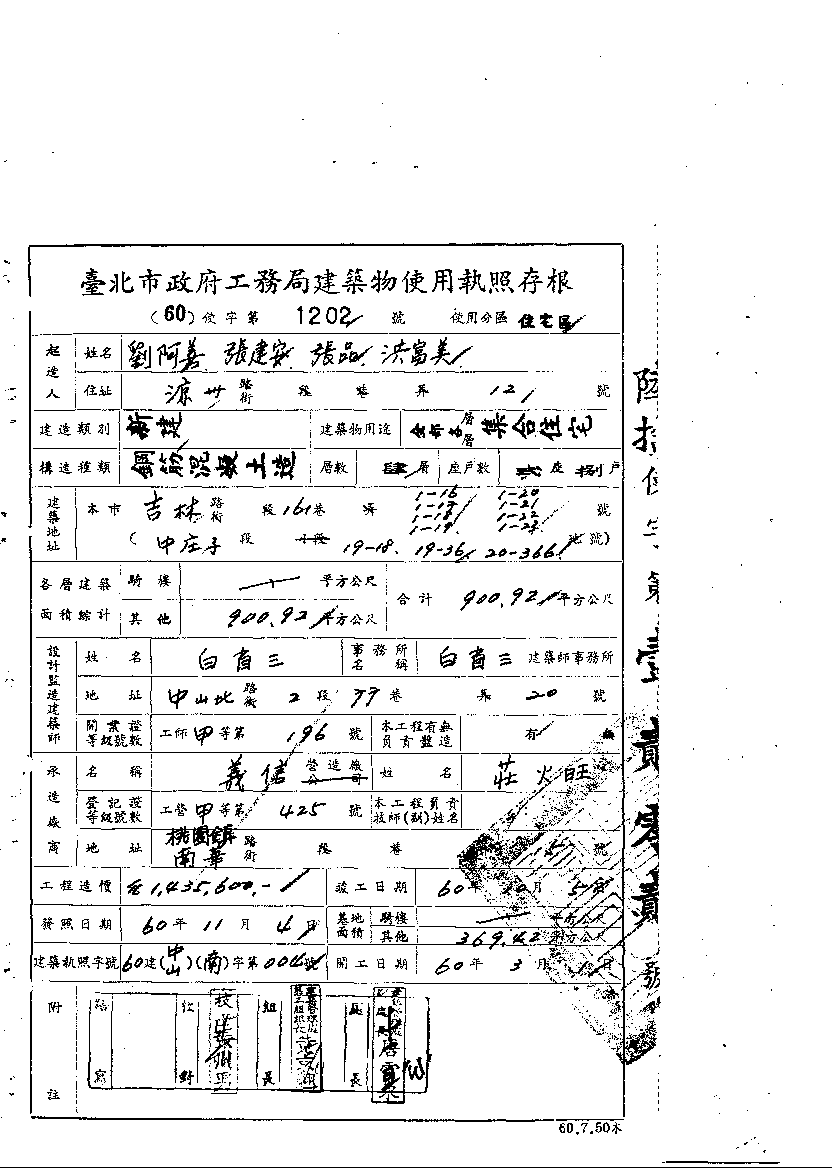 臺北市政府工務局建築物使用執照存根
(60)使字第 1202 號 使用分區 住宅區
起造人 姓名 劉阿善 張建安 張品 洪富美
住址 涼州 路街 段 巷 弄 12 號
建造類別 新建 建築物用途 全部各層層 集合住宅
構造種類 鋼筋混凝土造 層數 肆層 座戶數 座 捌戶
建築地址 本市 吉林 路街 段 161巷 弄 1-16 1-17 1-18 1-19 1-20 1-21 1-22 1-23 號
(中庄子 段 小段 19-18. 19-36 20-366 地號)
各層建築面積綜計 騎樓 平方公尺 合計 900.92 平方公尺
其他 900.92 平方公尺
設計監造建築師 姓名 白省三 事務所名稱 白省三 建築師事務所
地址 中山北 路街 2 段 77 巷 弄 20 號
開業證等級號數 工師 甲 等第 196 號 本工程有無負責監造 有 無
承造廠商 名稱 義信 營造廠公司 姓名 莊火旺
登記證等級號數 工營 甲 等第 425 號 本工程負責技師(副)姓名
地址 桃園鎮南華 路街 段 巷 號
工程造價 1,435,600.- 竣工日期 60年 10月 5日
發照日期 60年 11月 4日 基地面積 騎樓 平方公尺
其他 369.42 平方公尺
建築執照字號 60建(中山)(南)字第004號 開工日期 60年 3月 日
附註 繕寫 校對 組長 處長
60.7.50本
陸拾使字第壹貳零貳號